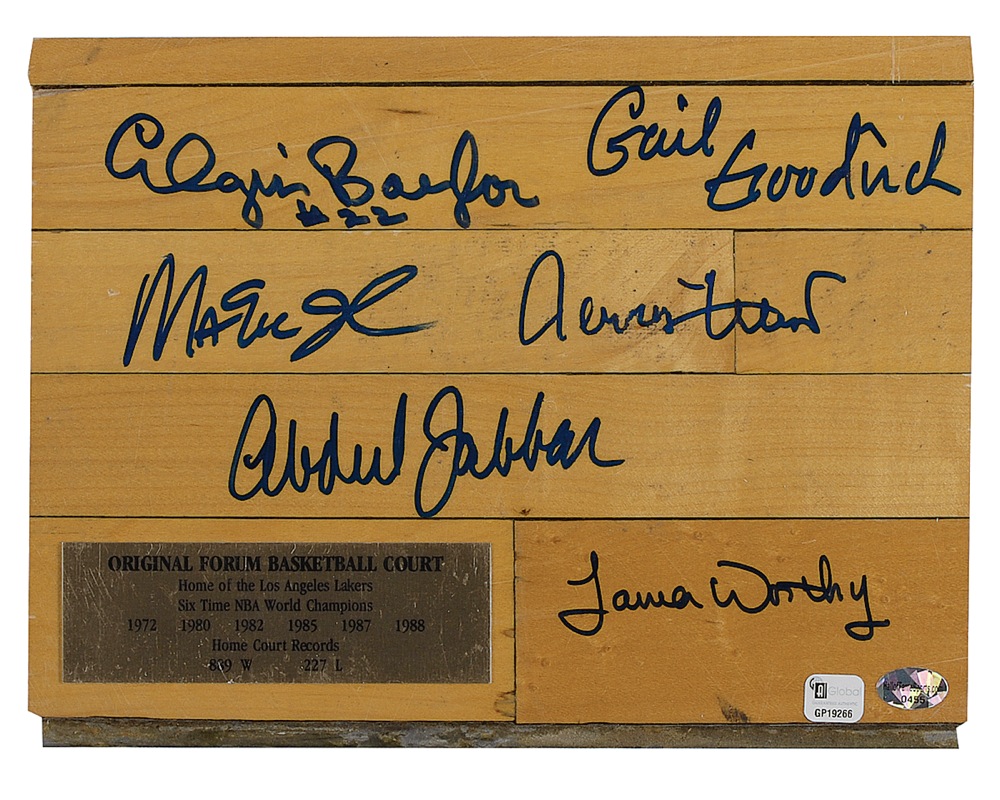 Elgin Baylor
#22
Gail Goodrich
Magic J
Jerry West
Abdul Jabbar
ORIGINAL FORUM BASKETBALL COURT
Home of the Los Angeles Lakers
Six Time NBA World Champions
1972 1980 1982 1985 1987 1988
Home Court Records
W 227 L
James Worthy
GAI Global
GP19266